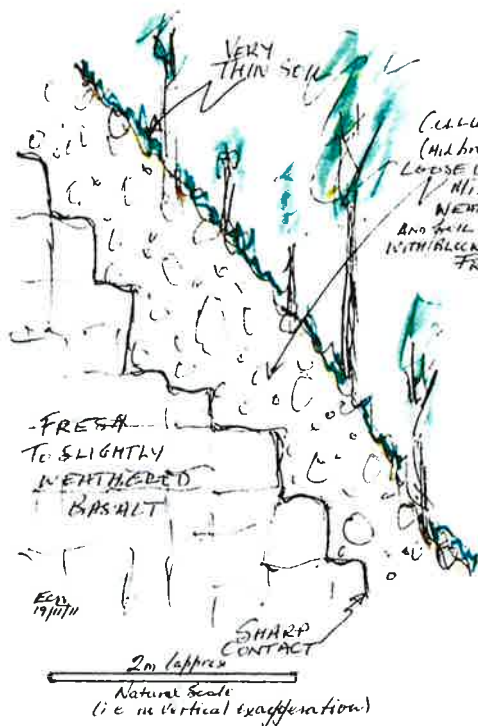 VERY
THIN SOIL
LOOSE
AND SOIL
WITH BLOCK
FR
FRESH
TO SLIGHTLY
WEATHERED
BASALT
19/11/11
SHARP
CONTACT
2m (approx
Natural Scale
(i.e. no vertical exaggeration)